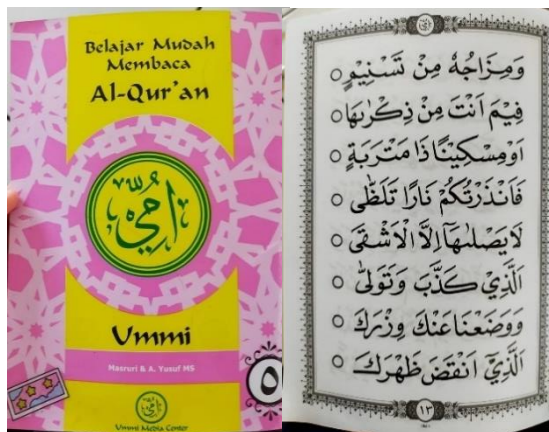 Belajar Mudah
Membaca
Al-Qur'an
أمي
Ummi
Masruri & A. Yusuf MS
٥
Ummi Media Center
وَمِزَاجُهُ مِنْ تَسْنِيْمٍ ○
فِيْمَ اَنْتَ مِنْ ذِكْرٰىهَا ○
اَوْمِسْكِيْنًا ذَا مَتْرَبَةٍ ○
فَاَنْذَرْتُكُمْ نَارًا تَلَظّٰى ○
لَا يَصْلٰىهَا اِلَّا الْاَشْقَى ○
الَّذِيْ كَذَّبَ وَتَوَلّٰى ○
وَوَضَعْنَا عَنْكَ وِزْرَكَ ○
الَّذِيْٓ اَنْقَضَ ظَهْرَكَ ○
١٣